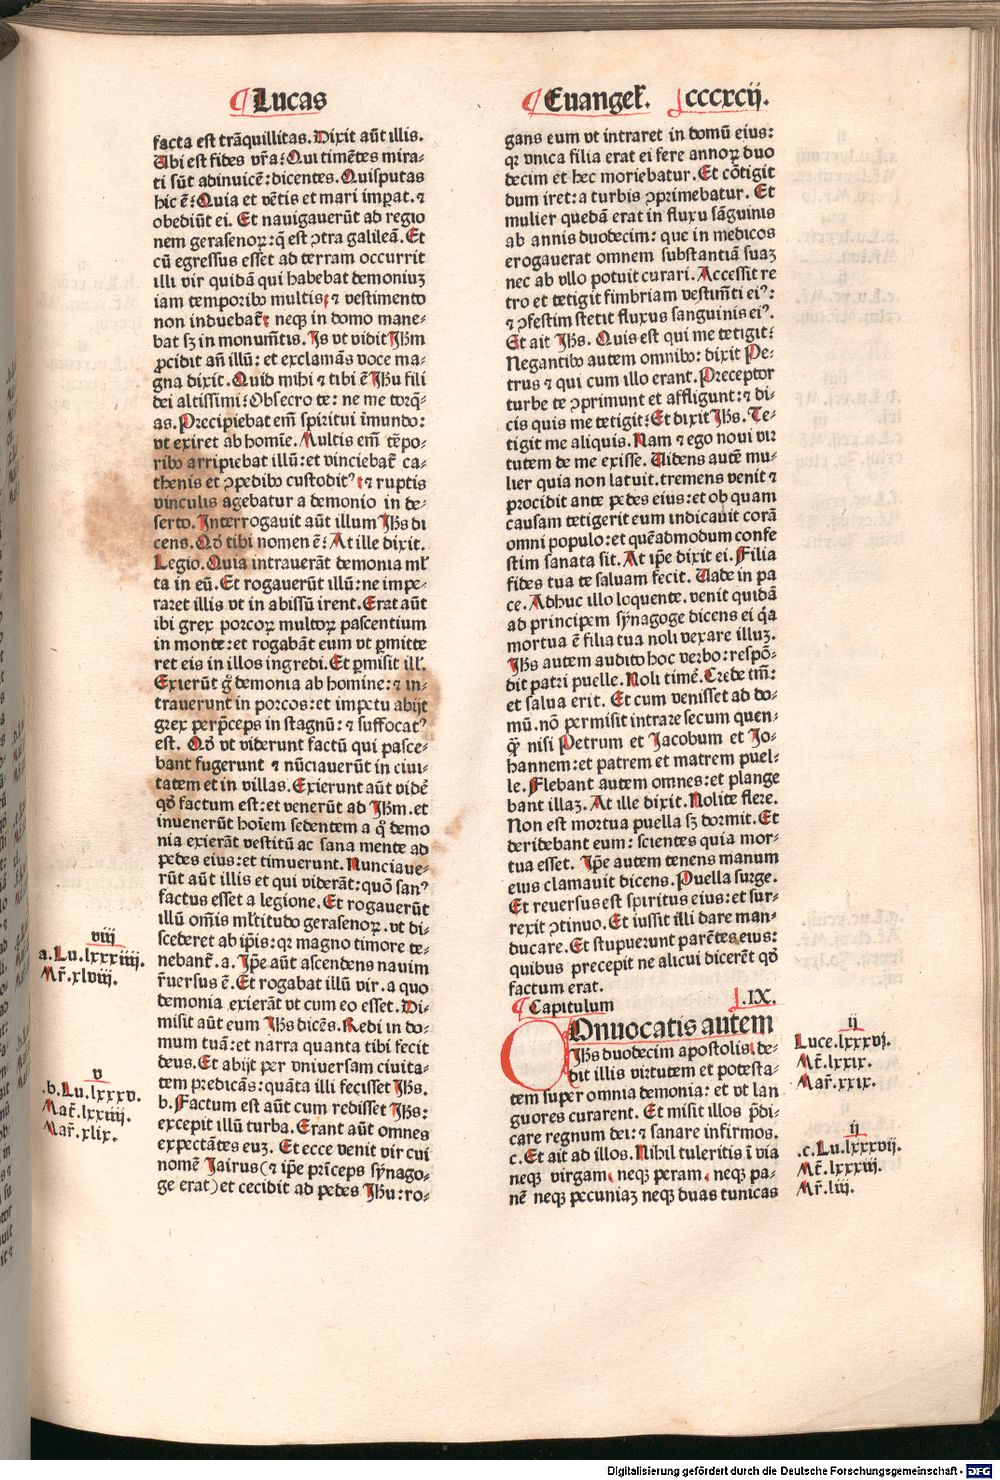 Lucas
Euangeł. cccxcij.
facta est trãquillitas. Dixit aũt illis.
Ubi est fides vr̃a: Qui timẽtes mira-
ti sũt adinuicẽ: dicentes. Quisputas
hic ẽ: Quia et vẽtis et mari imꝑat. ⁊
obediũt ei. Et nauigauerũt ad regio
nem gerasenoꝝ: q̃ est ꝯtra galileã. Et
cũ egressus esset ad terram occurrit
illi vir quidã qui habebat demoniuꝫ
iam temporibꝰ multis, ⁊ vestimento
non induebat̃, neqꝫ in domo mane-
bat sꝫ in monumẽtis. Is vt vidit Jh̃m
ꝓcidit añ illũ: et exclamãs voce ma-
gna dixit. Quid mihi ⁊ tibi ẽ Jh̃u fili
dei altissimi: Obsecro te: ne me torq̃-
as. Precipiebat em̃ spiritui ĩmundo:
vt exiret ab homĩe. Multis em̃ tẽpo-
ribꝰ arripiebat illũ: et vinciebat̃ ca-
thenis et ꝯpedibꝰ custoditꝰ, ⁊ ruptis
vinculis agebatur a demonio in de-
serto. Interrogauit aũt illum Jh̃s di
cens. Qḋ tibi nomen ẽ: At ille dixit.
Legio. Quia intrauerãt demonia mł
ta in eũ. Et rogauerũt illũ: ne impe-
raret illis vt in abissũ irent. Erat aũt
ibi grex porcoꝝ multoꝝ pascentium
in monte: et rogabãt eum vt ꝑmitte
ret eis in illos ingredi. Et ꝑmisit ill̃.
Exierũt g̊ demonia ab homine: ⁊ in-
trauerunt in porcos: et impetu abijt
grex perp̃ceps in stagnũ: ⁊ suffocatꝰ
est. Qḋ vt viderunt factũ qui pasce-
bant fugerunt ⁊ nũciauerũt in ciui-
tatem et in villas. Exierunt aũt vidẽ
qḋ factum est: et venerũt ad Jh̃m. et
inuenerũt hoĩem sedentem a q̊ demo
nia exierãt vestitũ ac sana mente ad
pedes eius: et timuerunt. Nunciaue-
rũt aũt illis et qui viderãt: quõ sanꝰ
factus esset a legione. Et rogauerũt
illũ om̃is mł̃titudo gerasenoꝝ. vt di-
scederet ab ip̃is: qꝛ magno timore te-
nebant̃. a. Ip̃e aũt ascendens nauim
r̃uersus ẽ. Et rogabat illũ vir. a quo
demonia exierãt vt cum eo esset. Di-
misit aũt eum Jh̃s dicẽs. Redi in do-
mum tuã: et narra quanta tibi fecit
deus. Et abijt per vniuersam ciuita-
tem predicãs: quãta illi fecisset Jh̃s.
b. Factum est aũt cum redisset Jh̃s:
excepit illũ turba. Erant aũt omnes
expectãtes euꝫ. Et ecce venit vir cui
nomẽ Jairus (⁊ ip̃e prĩceps synago-
ge erat) et cecidit ad pedes Jh̃u: ro-
viij
a. Lu. lxxxiiij.
Mr̃. xlviij.
v
.b. Lu. lxxxv.
Mat̃. lxxiiij.
Mar̃. xlix.
gans eum vt intraret in domũ eius:
qꝛ vnica filia erat ei fere annoꝝ duo
decim et hec moriebatur. Et cõtigit
dum iret: a turbis ꝯprimebatur. Et
mulier quedã erat in fluxu sãguinis
ab annis duodecim: que in medicos
erogauerat omnem substantiã suaꝫ
nec ab vllo potuit curari. Accessit re
tro et tetigit fimbriam vestim̃ti eiꝰ:
⁊ ꝯfestim stetit fluxus sanguinis eiꝰ.
Et ait Jh̃s. Quis est qui me tetigit:
Negantibꝰ autem omnibꝰ: dixit Pe-
trus ⁊ qui cum illo erant. Preceptor
turbe te ꝯprimunt et affligunt: ⁊ di-
cis quis me tetigit: Et dixit Jh̃s. Te-
tigit me aliquis. Nam ⁊ ego noui vir
tutem de me exisse. Uidens autẽ mu-
lier quia non latuit. tremens venit ⁊
procidit ante pedes eius: et ob quam
causam tetigerit eum indicauit corã
omni populo: et quẽadmodum confe
stim sanata sit. At ip̃e dixit ei. Filia
fides tua te saluam fecit. Uade in pa
ce. Adhuc illo loquente. venit quidã
ad principem synagoge dicens ei q̃a
mortua ẽ filia tua noli vexare illuꝫ.
Jh̃s autem audito hoc verbo: respõ-
dit patri puelle. Noli timẽ. Crede tm̃:
et salua erit. Et cum venisset ad do-
mũ. nõ permisit intrare secum quen-
q̃ȝ nisi Petrum et Jacobum et Jo-
hannem: et patrem et matrem puel-
le. Flebant autem omnes: et plange
bant illaꝫ. At ille dixit. Nolite flere.
Non est mortua puella sꝫ dormit. Et
deridebant eum: scientes quia mor-
tua esset. Ip̃e autem tenens manum
eius clamauit dicens. Puella surge.
Et reuersus est spiritus eius: et sur-
rexit ꝯtinuo. Et iussit illi dare man-
ducare. Et stupuerunt parẽtes eius:
quibus precepit ne alicui dicerẽt qḋ
factum erat.
Capitulum .IX.
Onuocatis autem
Jh̃s duodecim apostolis, de-
dit illis virtutem et potesta-
tem super omnia demonia: et vt lan
guores curarent. Et misit illos p̃di-
care regnum dei: ⁊ sanare infirmos.
c. Et ait ad illos. Nihil tuleritis ĩ via
neqꝫ virgam, neqꝫ peram, neqꝫ pa-
nẽ neqꝫ pecuniaꝫ neqꝫ duas tunicas
ij
Luce. lxxxvj.
Mt̃. lxxix.
Mar̃. xxix.
ij
.c. Lu. lxxxvij.
Mt̃. lxxxij.
Mr̃. liij.
Digitalisierung gefördert durch die Deutsche Forschungsgemeinschaft - DFG